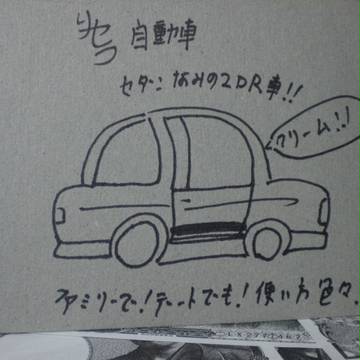 リセラ 自動車
セダンなみの2DR車!!
クリーム!!
ファミリーで!デートでも!使い方色々